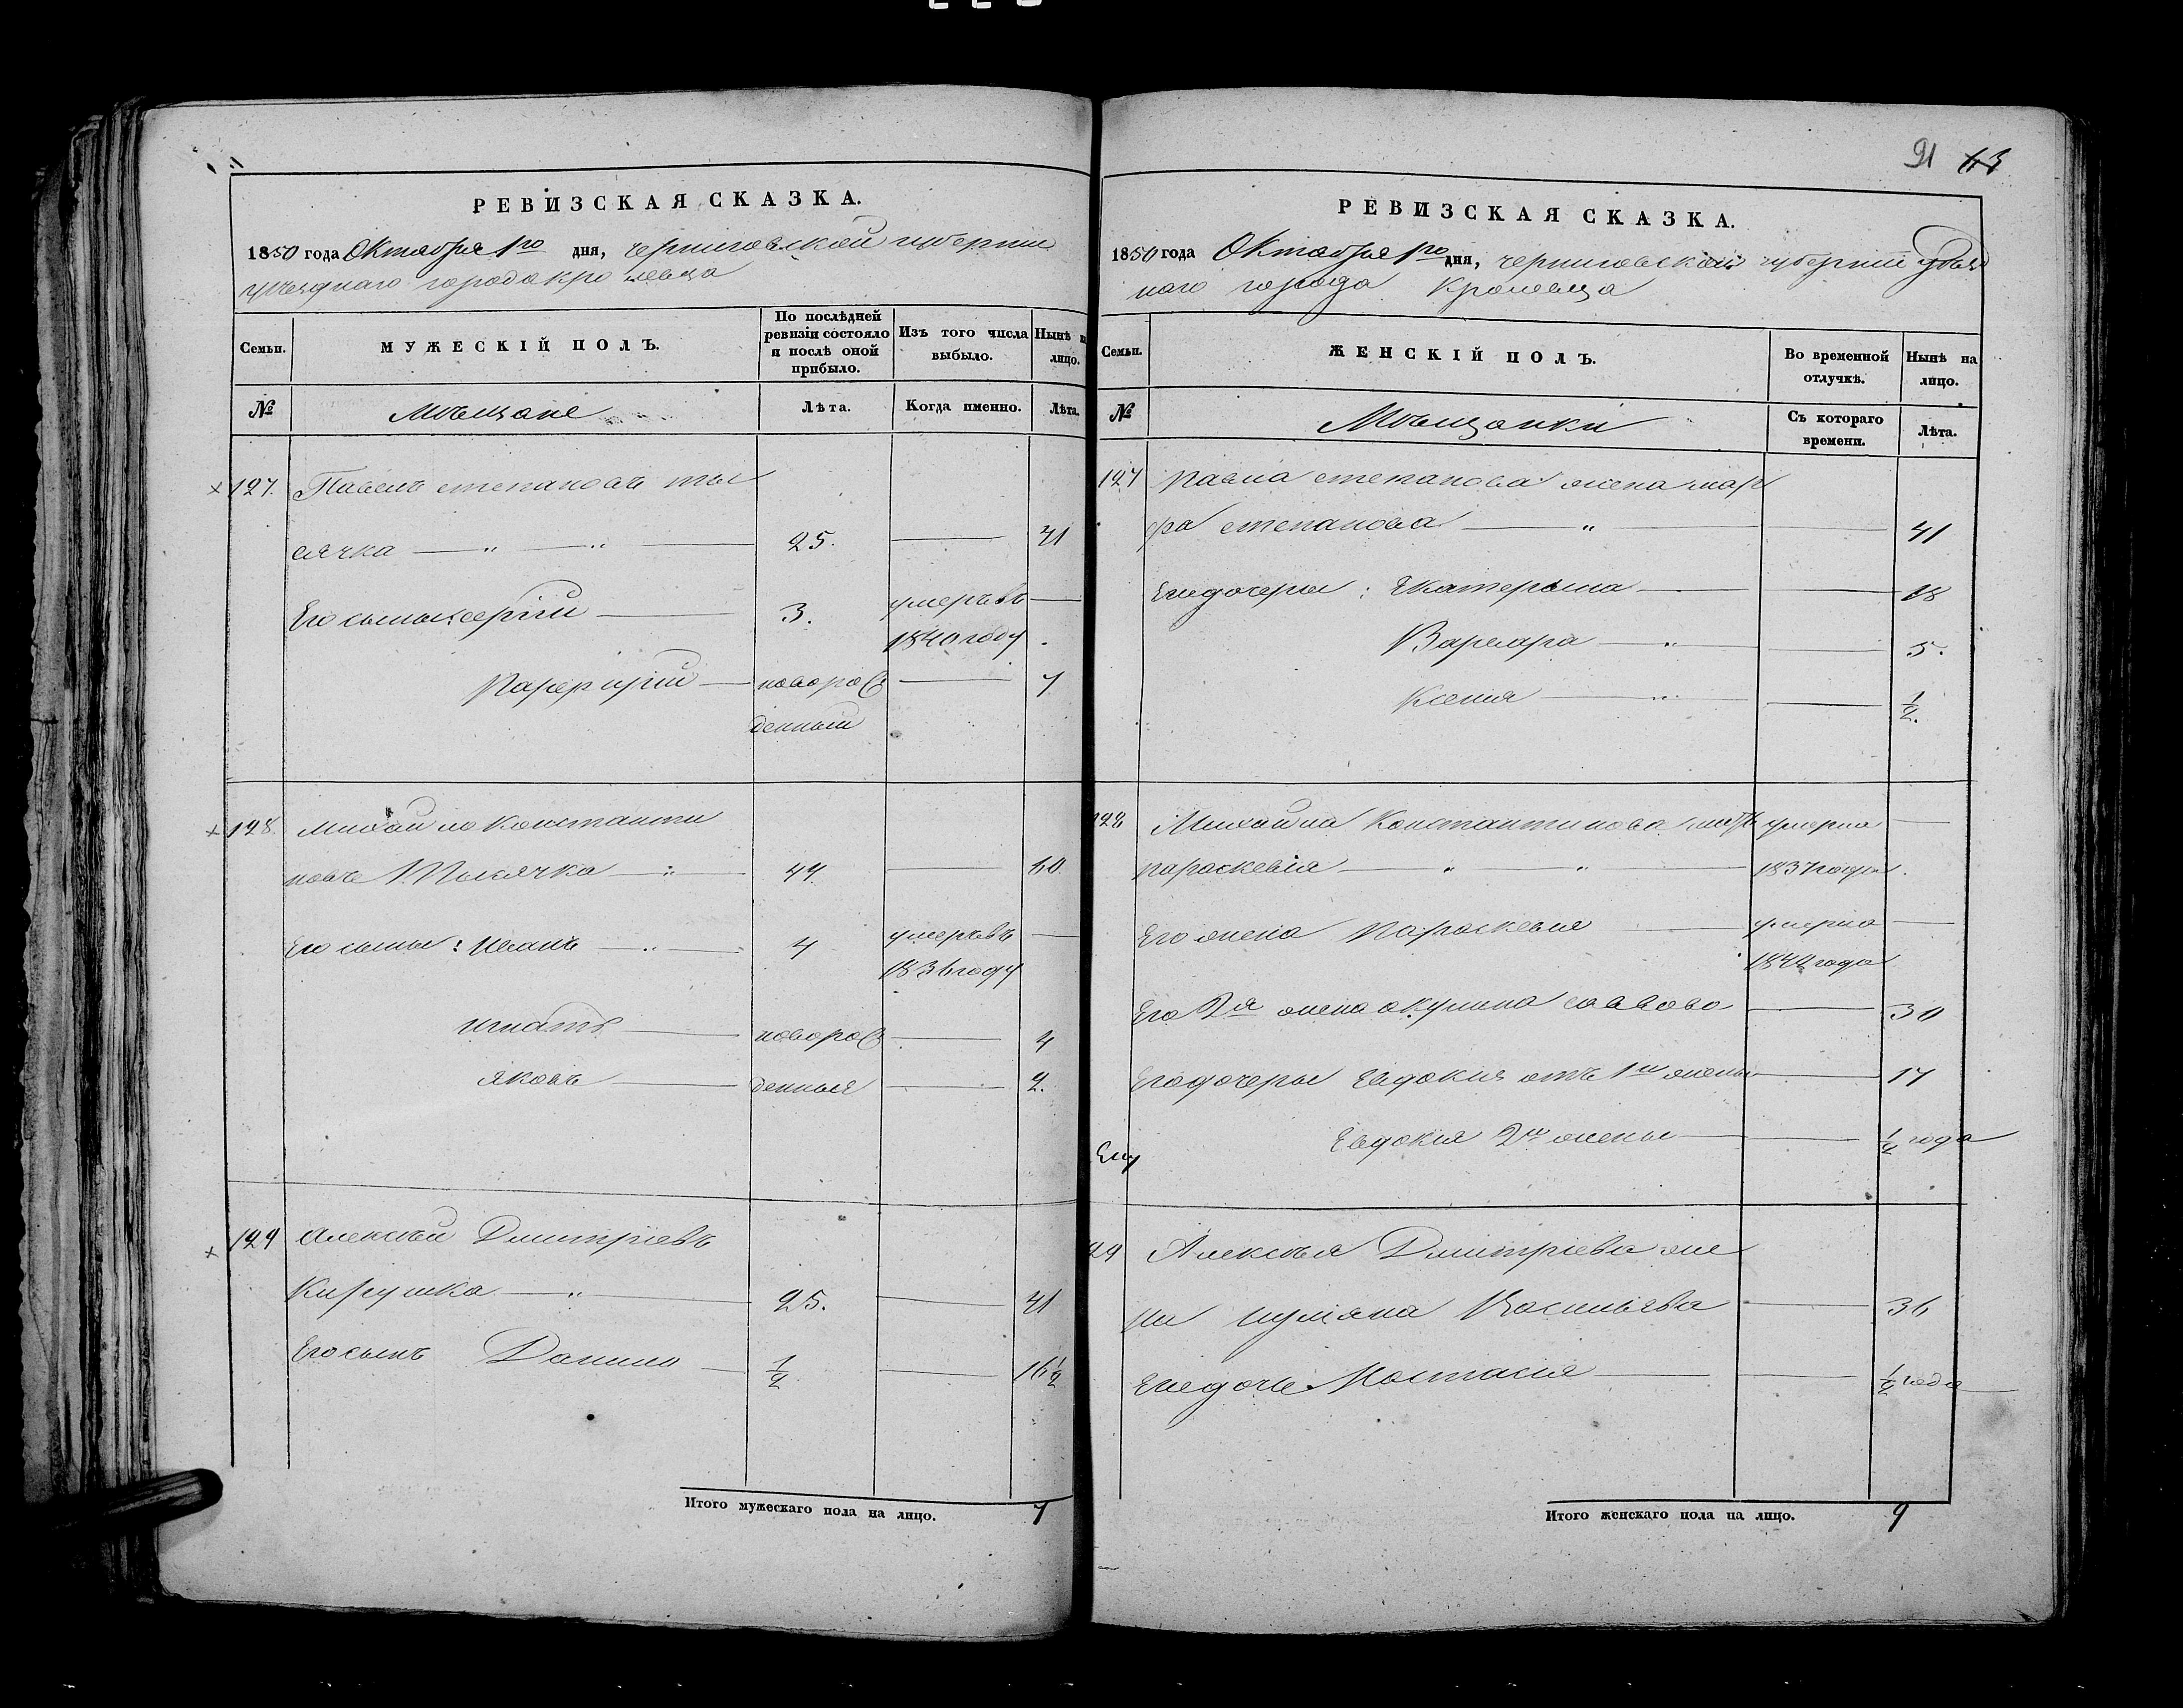 91 63
РЕВИЗСКАЯ СКАЗКА.
1850 года Октября 1го дня, черниговской губернии
уѣзднаго города кролевца
Семьи.
МУЖЕСКІЙ ПОЛЪ.
По послѣдней ревизіи состояло и послѣ оной прибыло.
Изъ того числа выбыло.
Нынѣ на лицо.
№
Мѣщане
Лѣта.
Когда именно.
Лѣта.
127. Павелъ степановъ ты
сячка 25. 41
Его сыны: сергій 3. умеръ въ
1840 году
Парфирій новорож 7
денный
128. Михайло Константи
новъ Тысячка 44 60.
Его сыны: Иванъ 4 умеръ въ
1836 году
игнатъ новорож 4
яковъ денныя 2.
129 Алексѣй Дмитріевъ
25. 41
Его сынъ Данило 1/2 16 1/2
Итого мужескаго пола на лицо. 7
РЕВИЗСКАЯ СКАЗКА.
1850 года Октября 1го дня, черниговской губерніи уѣзд
наго города Кролевца
Семьи.
ЖЕНСКІЙ ПОЛЪ.
Во временной отлучкѣ.
Нынѣ на лицо.
№
Мѣщанки
Съ котораго времени.
Лѣта.
127 Павла степанова жена мар
фа степанова 41
Его дочери: Екатерына 18
Варвара 5.
Ксения 1/2.
128 Михайла Константинова мать умерла
параскевія 1837 года.
Его жена Параскевия умерла
года
Его 2я жена акулина саввова 30
Его дочеры Евдокия отъ 1й жены 17
Евдокия 2й жены 1/2 года
Ему
29 Алексѣя Дмитріева же
на Василіева 36
Его дочь Настасия 1/2 года
Итого женскаго пола на лицо. 9